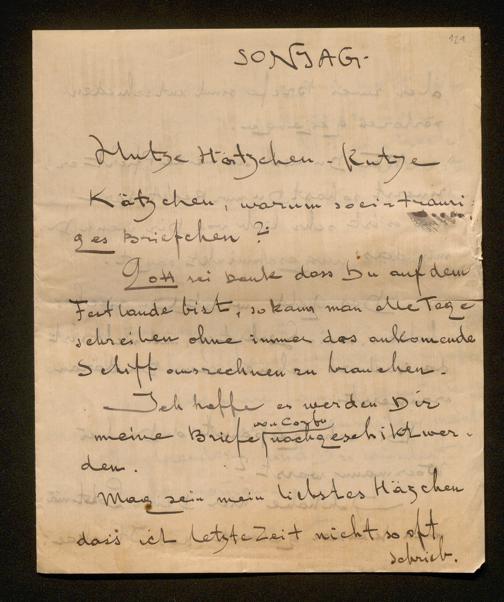 SONTAG.
121
Hutze Hätzchen - Kutze
Kätzchen, warum so ein trauri-
ges Briefchen?
Gott sei Dank dass Du auf dem
Festlande bist, so kann man alle Tage
schreiben ohne immer das ankomende
Schiff ausrechnen zu brauchen.
Ich hoffe es werden Dir
von Corfu
meine Briefe nachgeschikt wer-
den.
Mag sein mein liebstes Häzchen
dass ich letzte Zeit nicht so oft
schrieb.